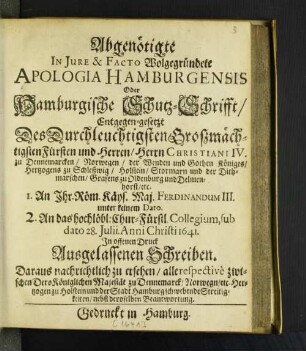 Abgenötigte
IN JURE & FACTO Wolgegründete
APOLOGIA HAMBURGENSIS
Oder
Hamburgische Schutz-Schrifft/
Entgegen-gesetzt
Des Durchleuchtigsten Großmäch-
tigsten Fürsten und Herren/ Herrn CHRISTIANI IV.
zu Dennemarcken/ Norwegen/ der Wenden und Gothen Königes/
Hertzogens zu Schleßwig/ Holstein/ Stormarn und der Dith-
marschen/ Grafens zu Oldenburg und Delmen-
horst/ etc.
1. An Ihr. Röm. Käys. Maj. FERDINANDUM III.
unter keinem Dato.
2. An das hochlöbl. Chur-Fürstl. Collegium, sub
dato 28. Julii. Anni Christi 1641.
In offenen Druck
Ausgelassenen Schreiben.
Daraus nachrichtlich zu ersehen/ alle respectivè zwi-
schen Dero Königlichen Majestät zu Dennemarck/ Norwegen/ etc. Her-
tzogen zu Holstein und der Stadt Hamburg schwebende Streitig-
keiten/ nebst deroselben Beantwortung.
Gedruckt in Hamburg.
[1641]